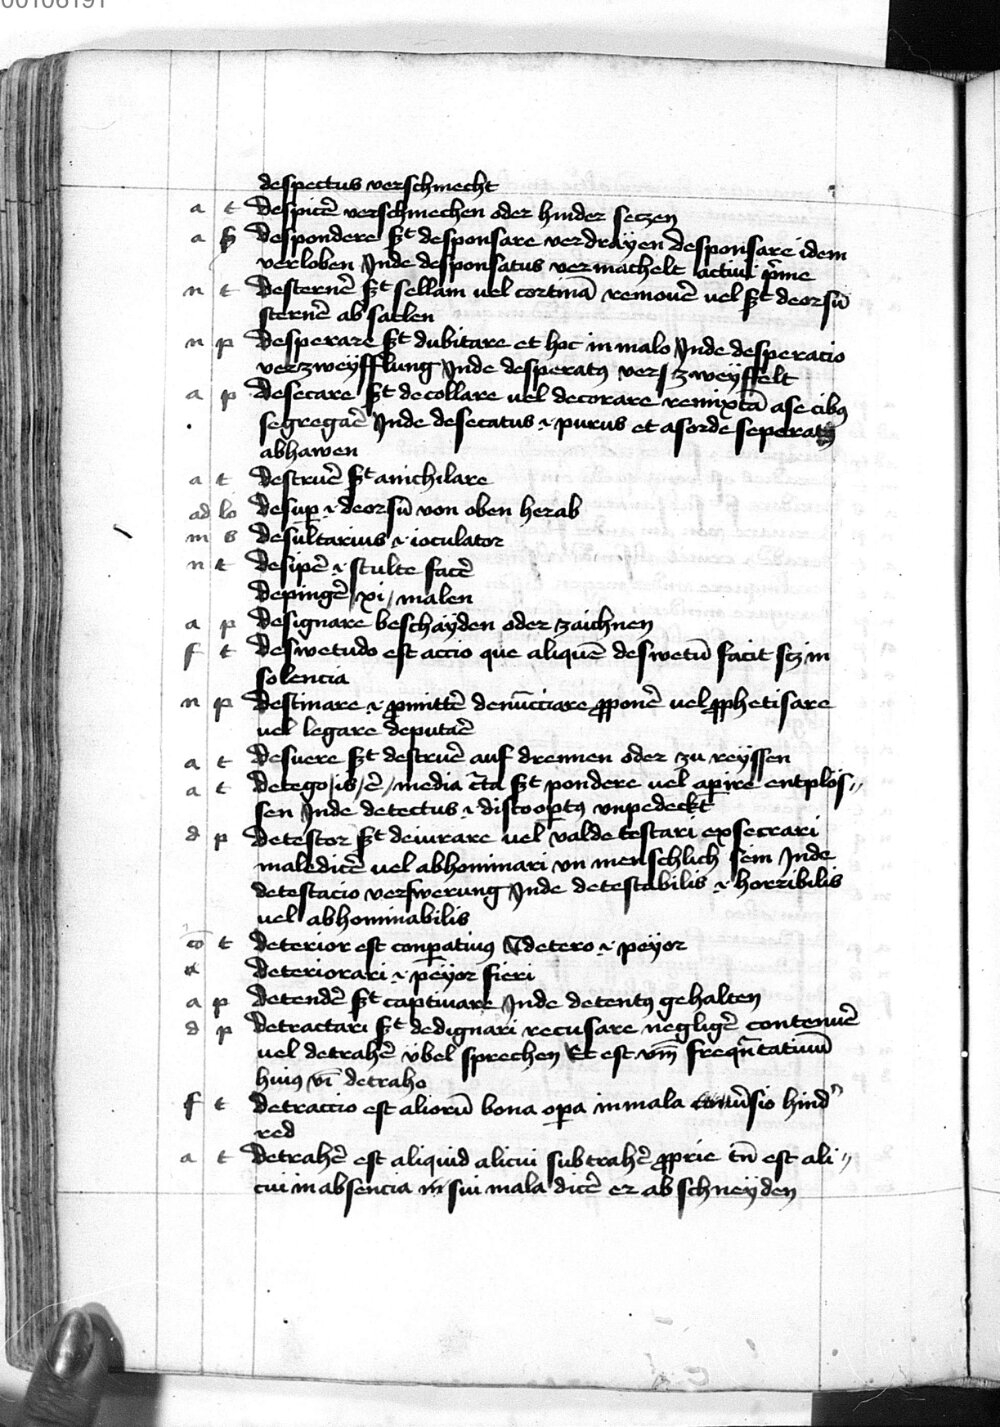 00106191
despectus verschmecht
a t Despicē verschmechen oder hinder seczen
a s Despondere s̄t desponsare verdrayen desponsare idem
verloben Inde desponsatus vermachelt activi p̄me
n t Desternē s̄t sellam vel cortinā removē vel s̄t deorsū
sternē ab satlen
n p Desperare s̄t dubitare et hoc in malo Inde desperacio
verzweyfflung Inde desperatꝰ verszweyffelt
a p Desecare s̄t decollare vel decorare remixtā a se cibꝰ
segregaē Inde desecatus ⁊ purus et a sorde seperatꝰ
abhawen
a t Destruē s̄t anichilare
ad lo Desuꝑ ⁊ deorsū von oben herab
m s Desultarius ⁊ ioculator
n t Desipē ⁊ stulte facē
Depingē / xi / malen
a p Designare beschayden oder zaichnen
f t Deswetudo est accio que aliquē deswetū facit scꝫ in
solencia
n p Destinare ⁊ ꝓmittē denūcciare ꝓponē vel ꝓphetisare
vel legare deputaē
a t Desuere s̄t destruē auf drennen oder zu reyssen
a t Detego / is / ē / media c̄ta s̄t pondere vel apire entplös〃
sen Inde detectus ⁊ discooꝑtꝰ unpedeckt
d p Detestor s̄t deiurare vel valde testari exsecrari
maledicē vel abhominari un menschlich sein Inde
detestacio verswerung Inde detestabilis ⁊ horribilis
vel abhominabilis
cō t Deterior est conꝑatiuꝰ detero ⁊ peyor
Deteriorari ⁊ peyor fieri
a p Detendē s̄t captivare Inde detentꝰ gehalten
d p Detractari s̄t dedignari recusare negligē contenuē
vel detrahē übel sprechen Et est vm̄ freqn̄tatiuū
huius vi detraho
f t Detraccio est aliorū bona oꝑa in mala conūsio hind
red
a t Detrahē est aliquid alicui subtrahē ꝓprie tn̄ est ali〃
cui in absencia sui mala dicē er ab schneyden